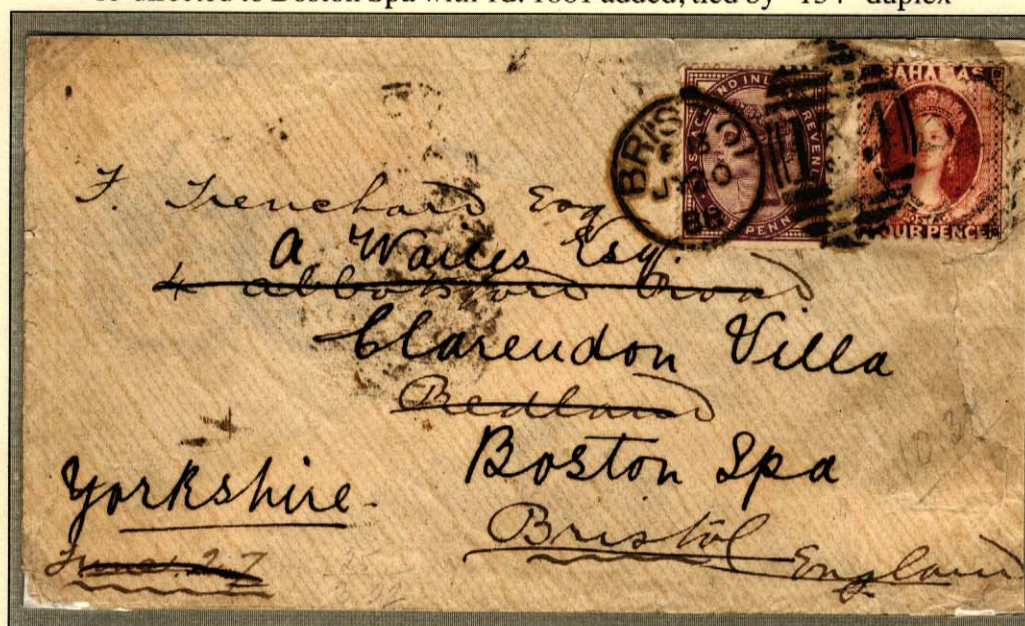 re-directed to Boston Spa with 1d. 1881 added, tied by "134" duplex
POSTAGE AND INLAND REVENUE
PENNY
BAHAMAS
FOUR PENCE
BRISTOL
88
F. Trenchard Esq
A. Wailes Esq.
4 abbotsford road
Clarendon Villa
Redland
Boston Spa
Yorkshire.
Bristol
England
June. 27